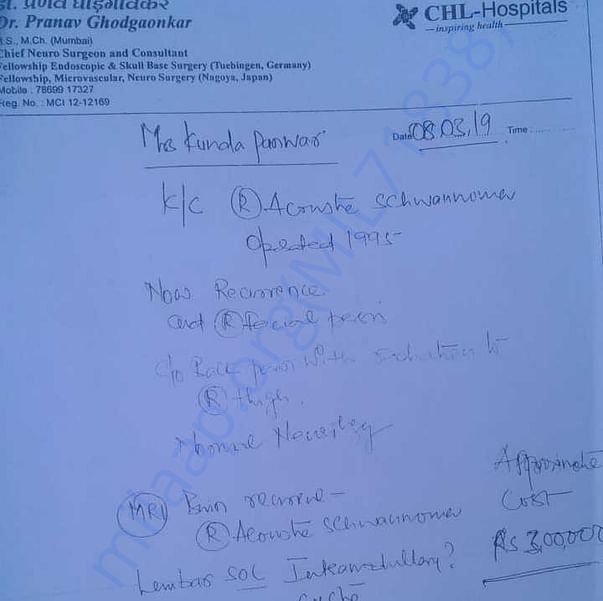 डॉ. प्रणव घोड़गांवकर
Dr. Pranav Ghodgaonkar
M.S., M.Ch. (Mumbai)
Chief Neuro Surgeon and Consultant
Fellowship Endoscopic & Skull Base Surgery (Tuebingen, Germany)
Fellowship, Microvascular, Neuro Surgery (Nagoya, Japan)
Mobile : 78699 17327
Reg. No. : MCI 12-12169
CHL-Hospitals
—inspiring health—
Date 08.03.19 Time :
Mrs Kunda Panwar
K/C (R) Acoustic Schwannoma
Operated 1995
Now Recurrence
and (R) facial
c/o Back pain with radiation to
(R) thigh.
MRI Brain
(R) Acoustic Schwannoma
Lumbar SOL Intramedullary?
Approximate
Cost
Rs 3,00,000
milaap.org